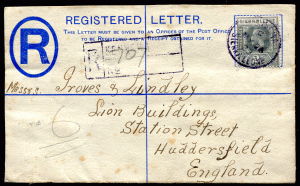 REGISTERED LETTER.
THIS LETTER MUST BE GIVEN TO AN OFFICER OF THE POST OFFICE
TO BE REGISTERED AND A RECEIPT OBTAINED FOR IT.
R
Messrs. Groves & Lindley
Lion Buildings,
Station Street
Huddersfield
England.